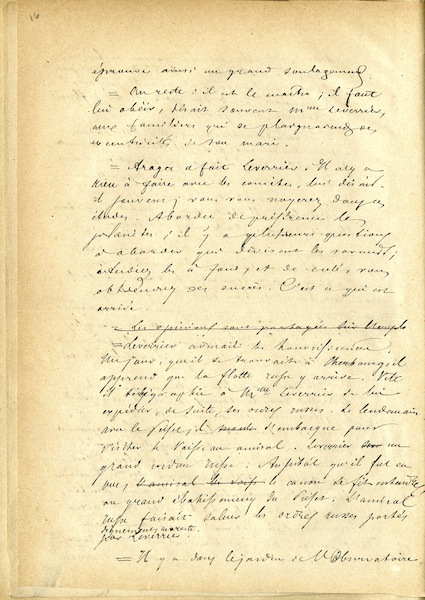 16
éprouve ainsi un grand soulagement.
= Du reste : il est le maître ; il faut
lui obéir, disait souvent Mme Leverrier,
aux familiers qui se plaignaient des
excentricités de son mari.
= Arago a fait Leverrier. Il n'y a
rien à faire avec les comètes, lui disait-
il souvent ; vous vous noyerez dans ces
études. Abordez de préférence les
planètes ; il y a plusieurs questions
à aborder qui divisent les savants ;
étudiez les à fond, et de suite, vous
obtiendrez des succès. C'est ce qui est
arrivé.
= Les opinions sont partagées sur
= Leverrier aimait les
Un jour, qu'il se trouvait à Cherbourg, il
apprend que la flotte russe y arrive. Vite
il télégraphie à Mme Leverrier de lui
expédier, de suite, ses ordres russes. Le lendemain
avec le Préfet, il s'embarque pour
visiter le vaisseau amiral. Leverrier un
grand cordon russe. Aussitôt qu'il fut en
vue, l'amiral le canon se fit entendre
au grand ébahissement du Préfet. L'amiral
russe faisait saluer les ordres russes portés
par Leverrier.
= Il y a dans le jardin de l'Observatoire,